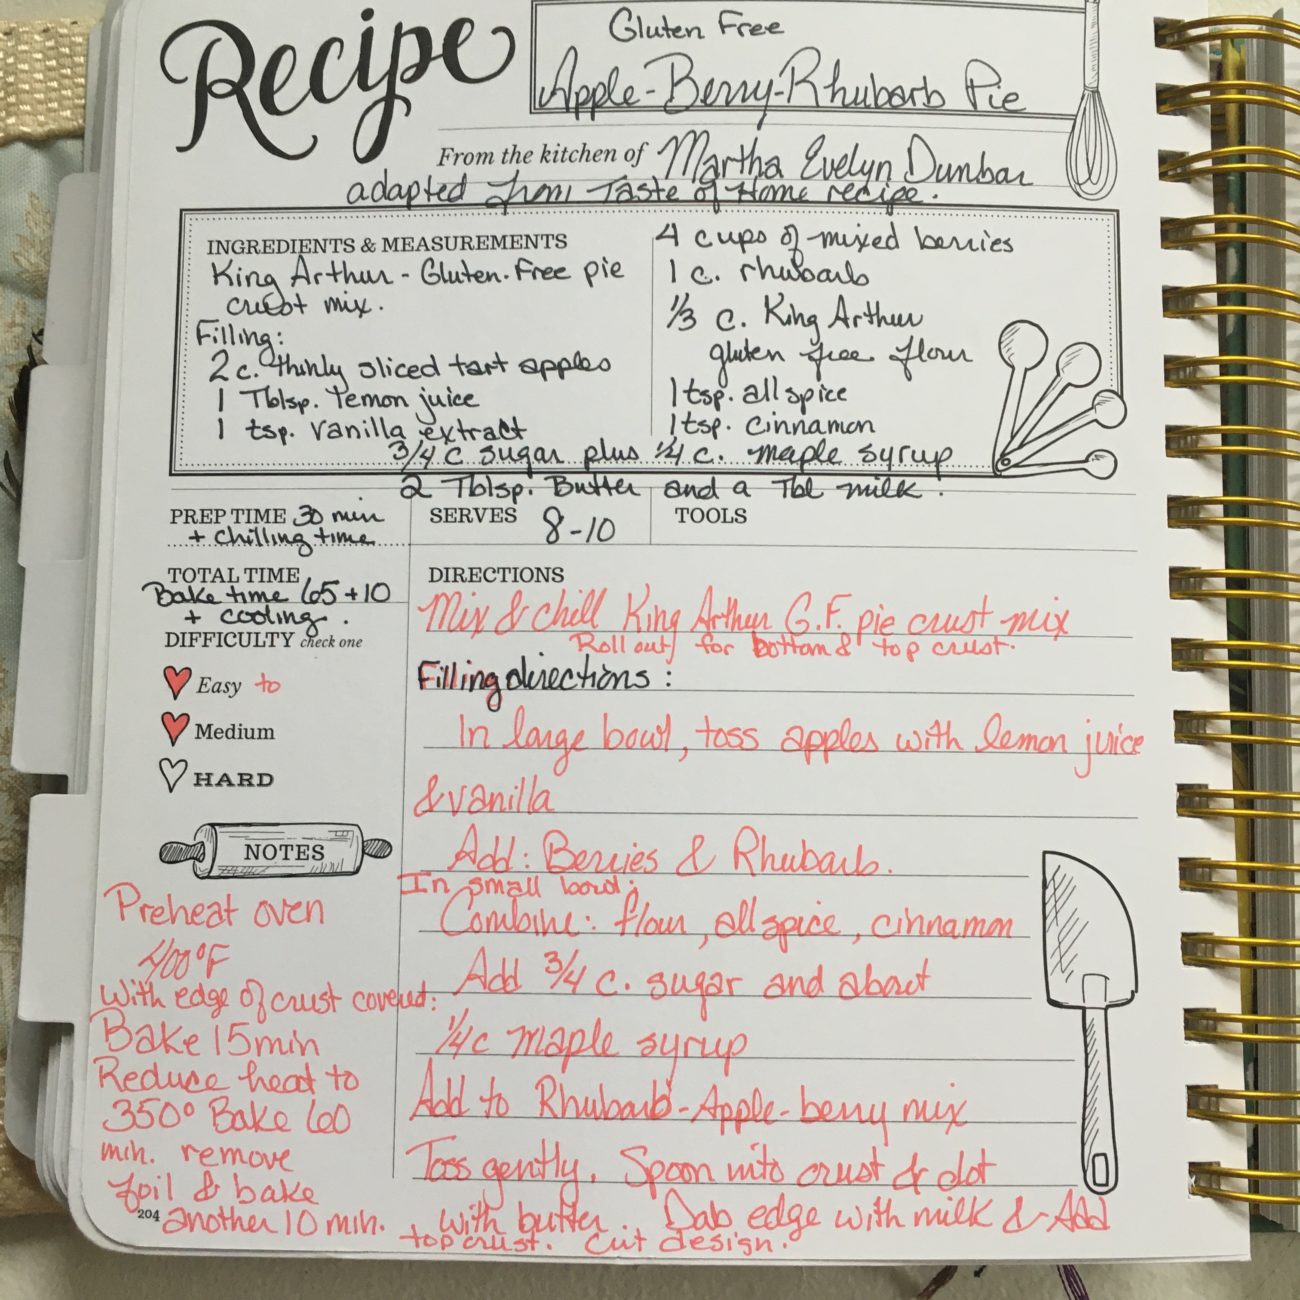 Recipe
Gluten Free
Apple-Berry-Rhubarb Pie
From the kitchen of Martha Evelyn Dunbar
adapted from Taste of Home recipe.
INGREDIENTS & MEASUREMENTS
King Arthur - Gluten-Free pie
crust mix.
Filling:
2 c. thinly sliced tart apples
1 Tblsp. lemon juice
1 tsp. vanilla extract
4 cups of mixed berries
1 c. rhubarb
1/3 c. King Arthur
gluten free flour
1 tsp. allspice
1 tsp. cinnamon
3/4 c sugar plus 1/4 c. maple syrup
2 Tblsp. Butter and a Tbl milk.
PREP TIME 30 min
+ chilling time
SERVES 8-10
TOOLS
TOTAL TIME
Bake time 65+10
+ cooling.
DIFFICULTY check one
Easy to
Medium
HARD
NOTES
Preheat oven
400°F
With edge of crust covered:
Bake 15 min
Reduce heat to
350° Bake 60
min. remove
foil & bake
another 10 min.
204
DIRECTIONS
Mix & chill King Arthur G.F. pie crust mix
Roll out for bottom & top crust.
Filling directions:
In large bowl, toss apples with lemon juice
& vanilla
Add: Berries & Rhubarb.
In small bowl:
Combine: flour, allspice, cinnamon
Add 3/4 c. sugar and about
1/4 c maple syrup
Add to Rhubarb-Apple-berry mix
Toss gently. Spoon into crust & dot
with butter. Dab edge with milk & Add
top crust. Cut design.